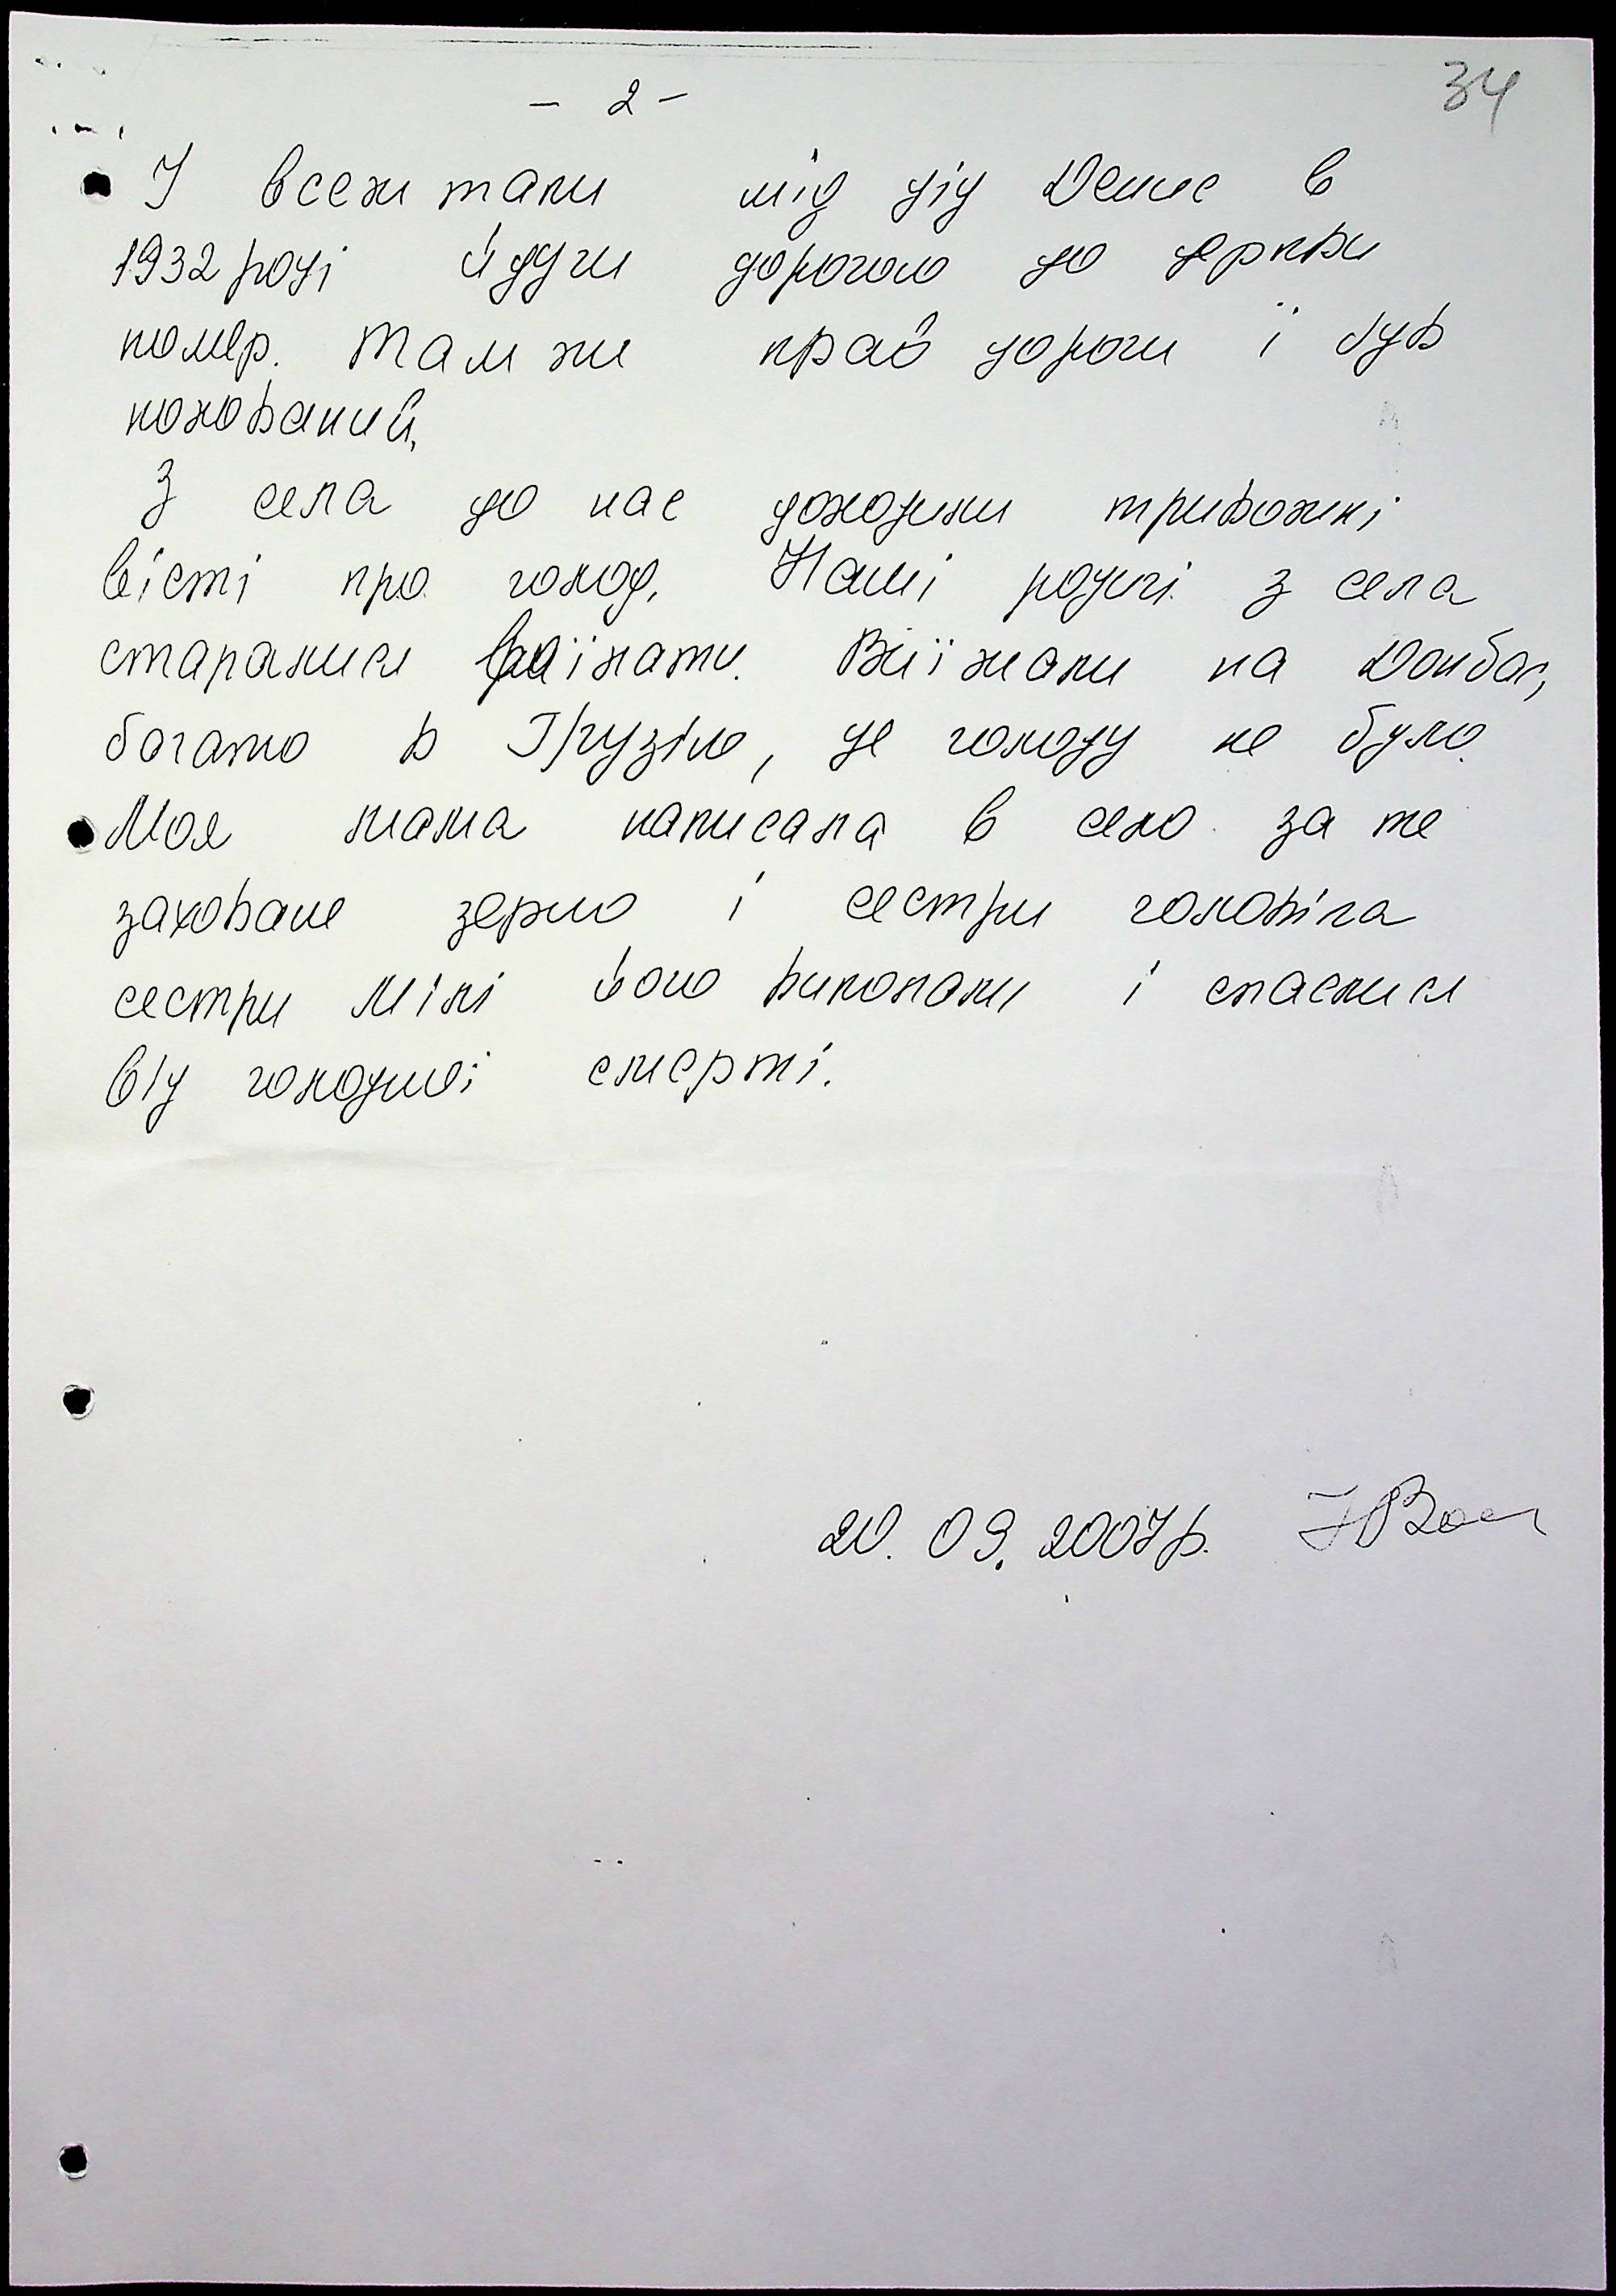 - 2 -
34
І всежтаки мій дід Денис в
1932 році йдучи дорогою до церкви
помер. Там же край дороги і був
похований.
З села до нас доходили тривожні
вісті про голод. Наші родичі з села
старалися виїхати. Виїжали на Донбас,
багато в Грузію, де голоду не було.
Моя мама написала в село за те
заховане зерно і сестри чоловіка
сестри Мілі його викопали і спаслися
від голодної смерті.
20. 09. 2007 р.